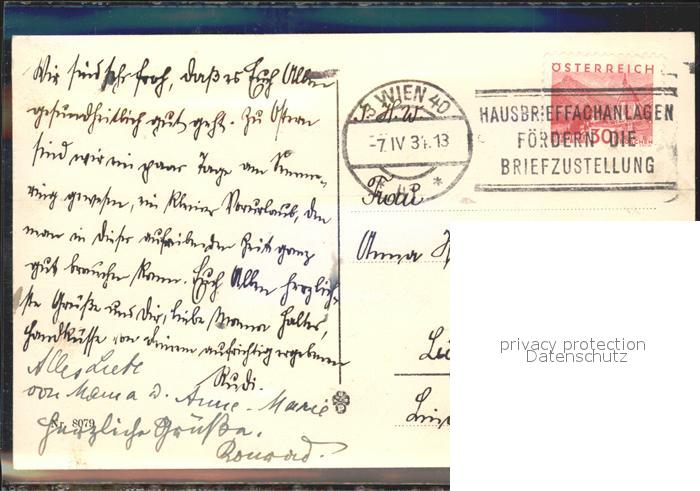 Wir sind sehr froh, daß es Euch Allen
gesundheitlich gut geht. Zu Ostern
sind wir ein paar Tage am Semme-
ring gewesen, ein kleiner Vorurlaub, den
man in dieser aufreibenden Zeit ganz
gut brauchen kann. Euch Allen herzlich-
ste Grüße und Dir, liebe Mama Halter,
Handküsse von Deinem aufrichtig ergebenen
Rudi.
Alles Liebe
von Mama u. Anne-Marie
Herzliche Grüße.
Konrad.
Nr. 8079
WIEN 40
-7. IV 31. 13
HAUSBRIEFFACHANLAGEN
FÖRDERN DIE
BRIEFZUSTELLUNG
ÖSTERREICH
30
GROSCHEN
Frau
Anna
privacy protection
Datenschutz